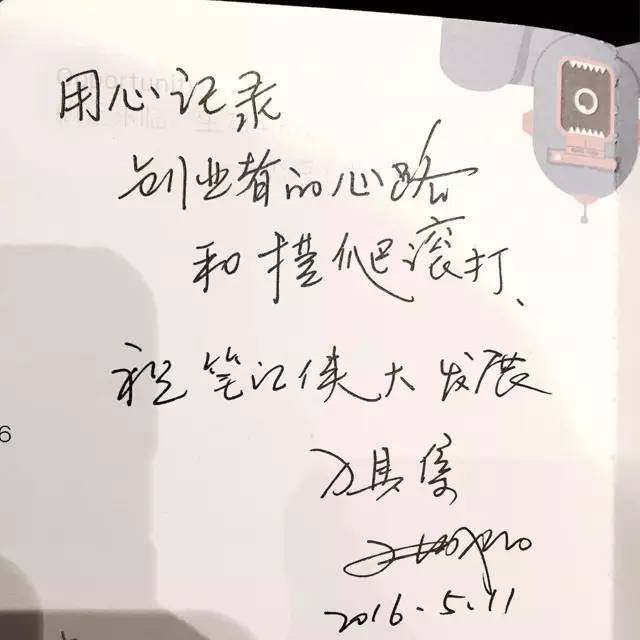 Opportunity
用心记录
创业者的心路
和摸爬滚打、
祝笔记侠大发展
6
2016.5.11